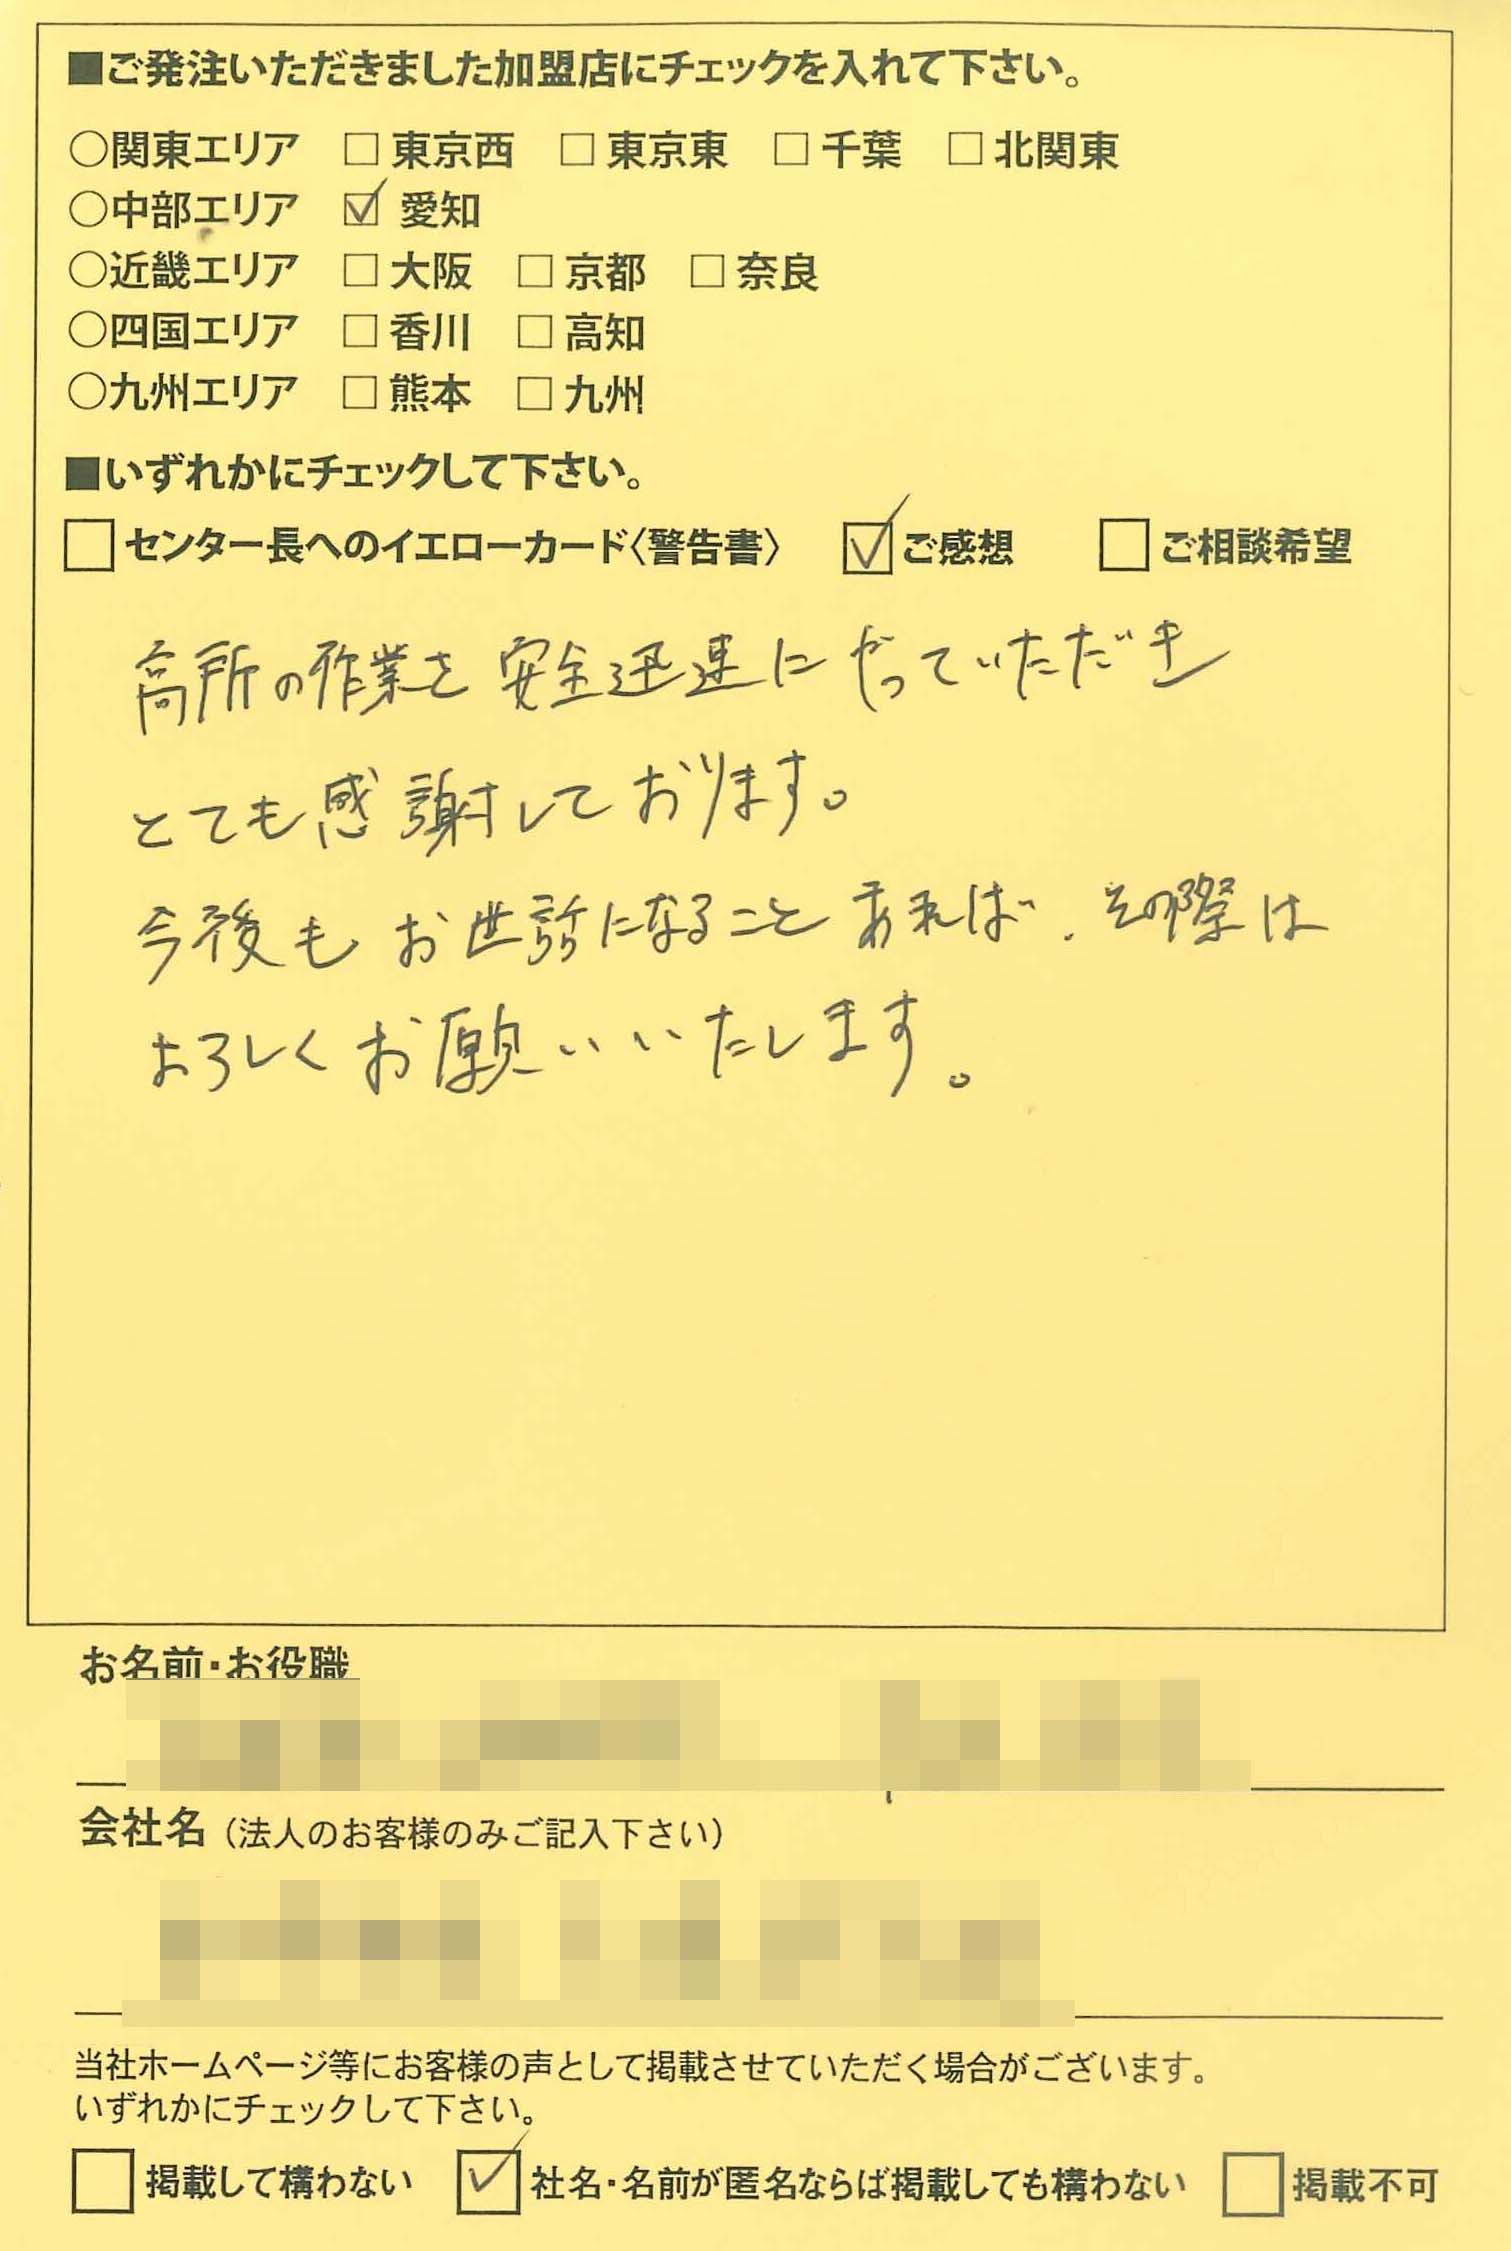 ■ご発注いただきました加盟店にチェックを入れて下さい。
○関東エリア □東京西 □東京東 □千葉 □北関東
○中部エリア ☑愛知
○近畿エリア □大阪 □京都 □奈良
○四国エリア □香川 □高知
○九州エリア □熊本 □九州
■いずれかにチェックして下さい。
□センター長へのイエローカード〈警告書〉 ☑ご感想 □ご相談希望
高所の作業を安全迅速にやっていただき
とても感謝しております。
今後もお世話になることあれば、その際は
よろしくお願いいたします。
お名前・お役職
会社名（法人のお客様のみご記入下さい）
当社ホームページ等にお客様の声として掲載させていただく場合がございます。
いずれかにチェックして下さい。
□掲載して構わない ☑社名・名前が匿名ならば掲載しても構わない □掲載不可